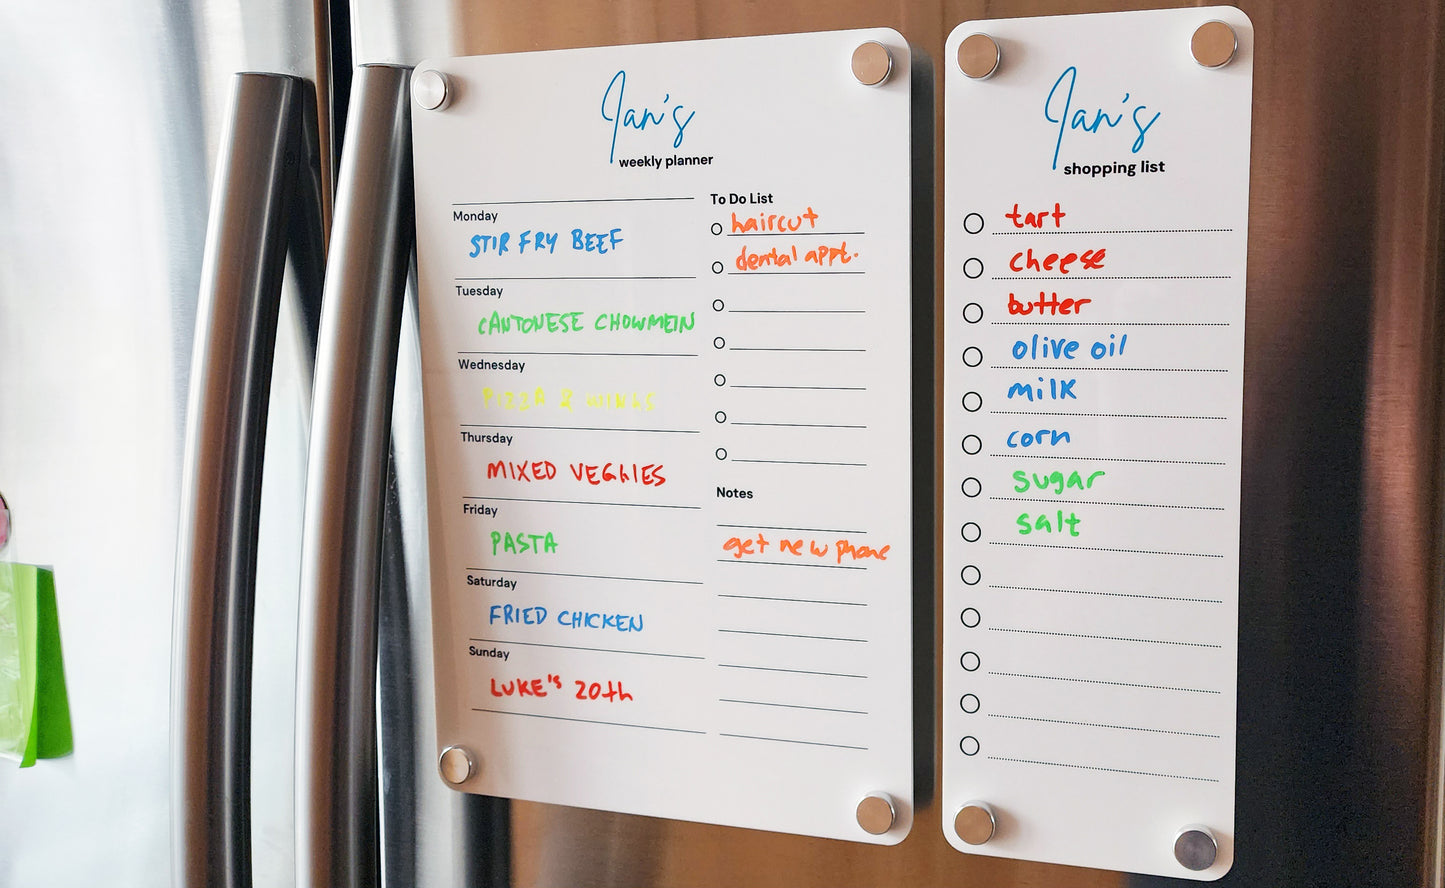 Jan's
weekly planner
Monday
STIR FRY BEEF
Tuesday
CANTONESE CHOWMEIN
Wednesday
PIZZA & WINGS
Thursday
MIXED VEGGIES
Friday
PASTA
Saturday
FRIED CHICKEN
Sunday
LUKE's 20th
To Do List
haircut
dental appt.
Notes
get new phone
Jan's
shopping list
tart
cheese
butter
olive oil
milk
corn
sugar
salt